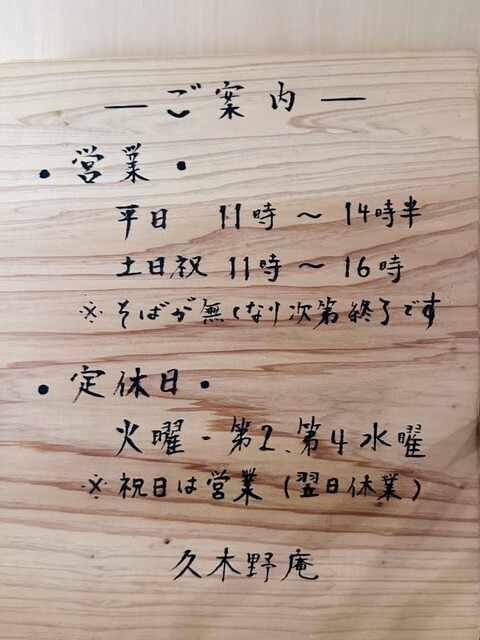 ― ご案内 ―
• 営業 •
平日 11時 〜 14時半
土日祝 11時 〜 16時
※ そばが無くなり次第終了です
• 定休日 •
火曜 - 第2、第4水曜
※ 祝日は営業 (翌日休業)
久木野庵